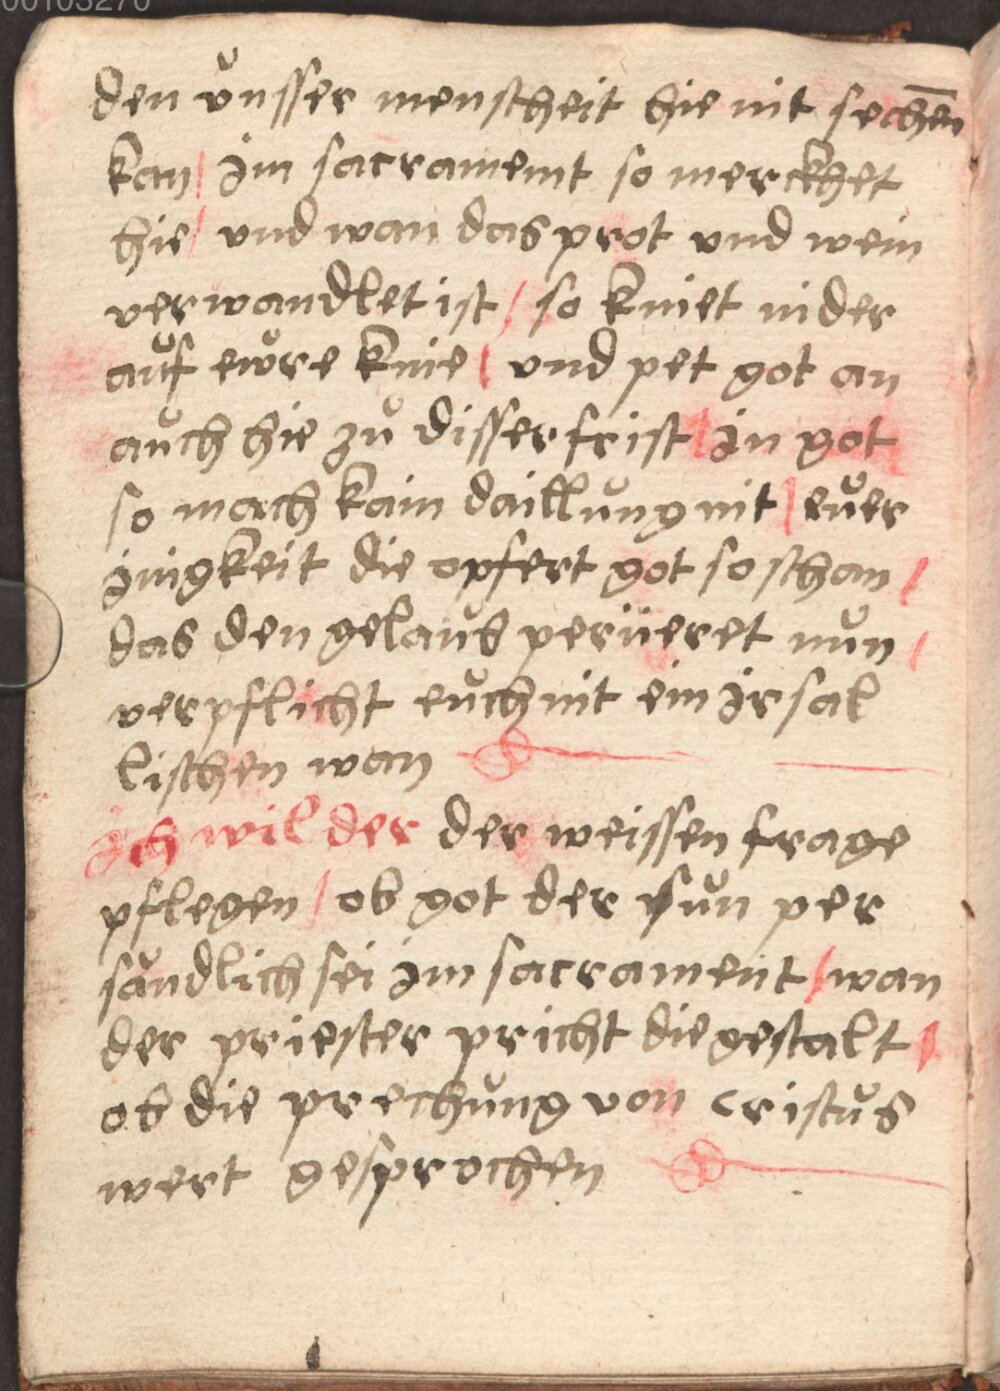 00103270
den ůnsser menscheit hie nit sechen̄
kan / im sacrament so merckhet
hie / vnd wan das prot vnd wein
verwandlet ist / so kniet nider
aůf eẘre knie / vnd pet got an
aůch hie zů disser frist / in got
so mach kain daillůng nit / eůer
inigkeit die opfert got so schan /
das den gelaůb perüeret nůn /
verpflicht eůch nit ein irsal
lischen wan
Ich wil der der weissen frage
pflegen / ob got der sůn per
sandlich sei im sacrament / wan
der priester pricht die gestalt /
ob die prechůng von cristůs
wert gesprochen